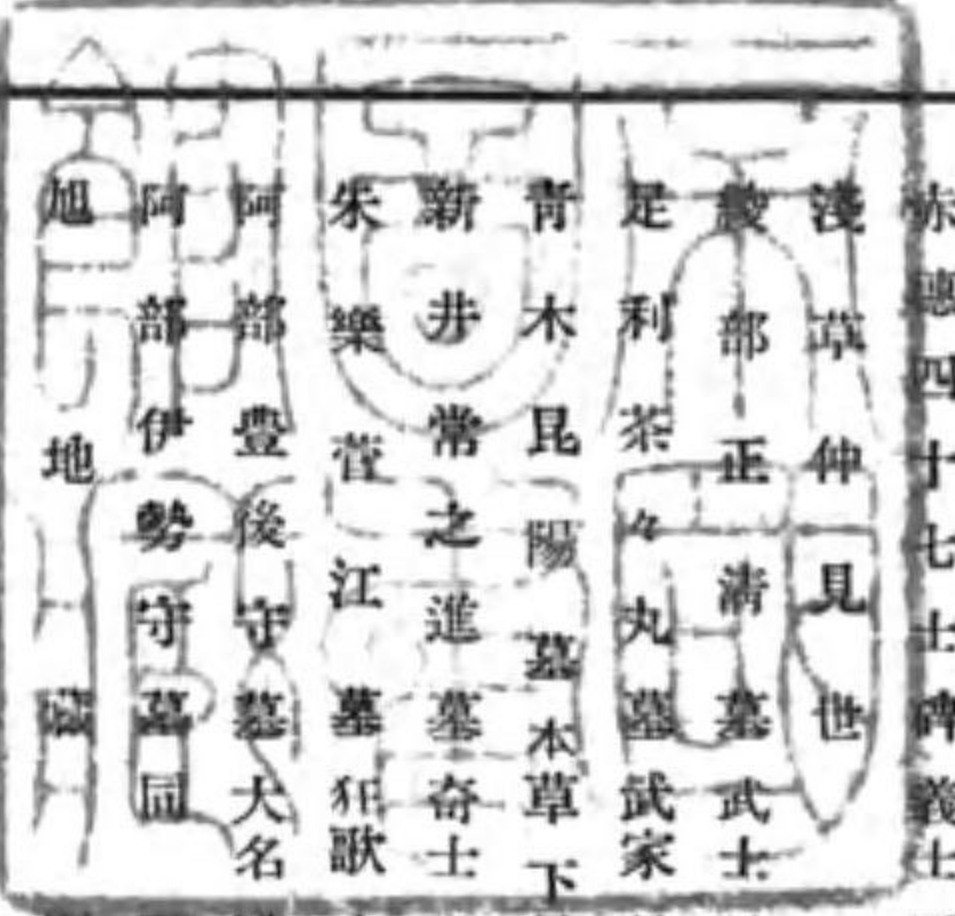 赤穗四十七士碑義士
淺草仲見世
綾部正淸墓武士
足利茶々丸墓武家
青木昆陽墓本草下
新井常之進墓奇士
朱樂菅江墓狂歌
阿部豊後守墓大名
阿部伊勢守墓同
旭地藏